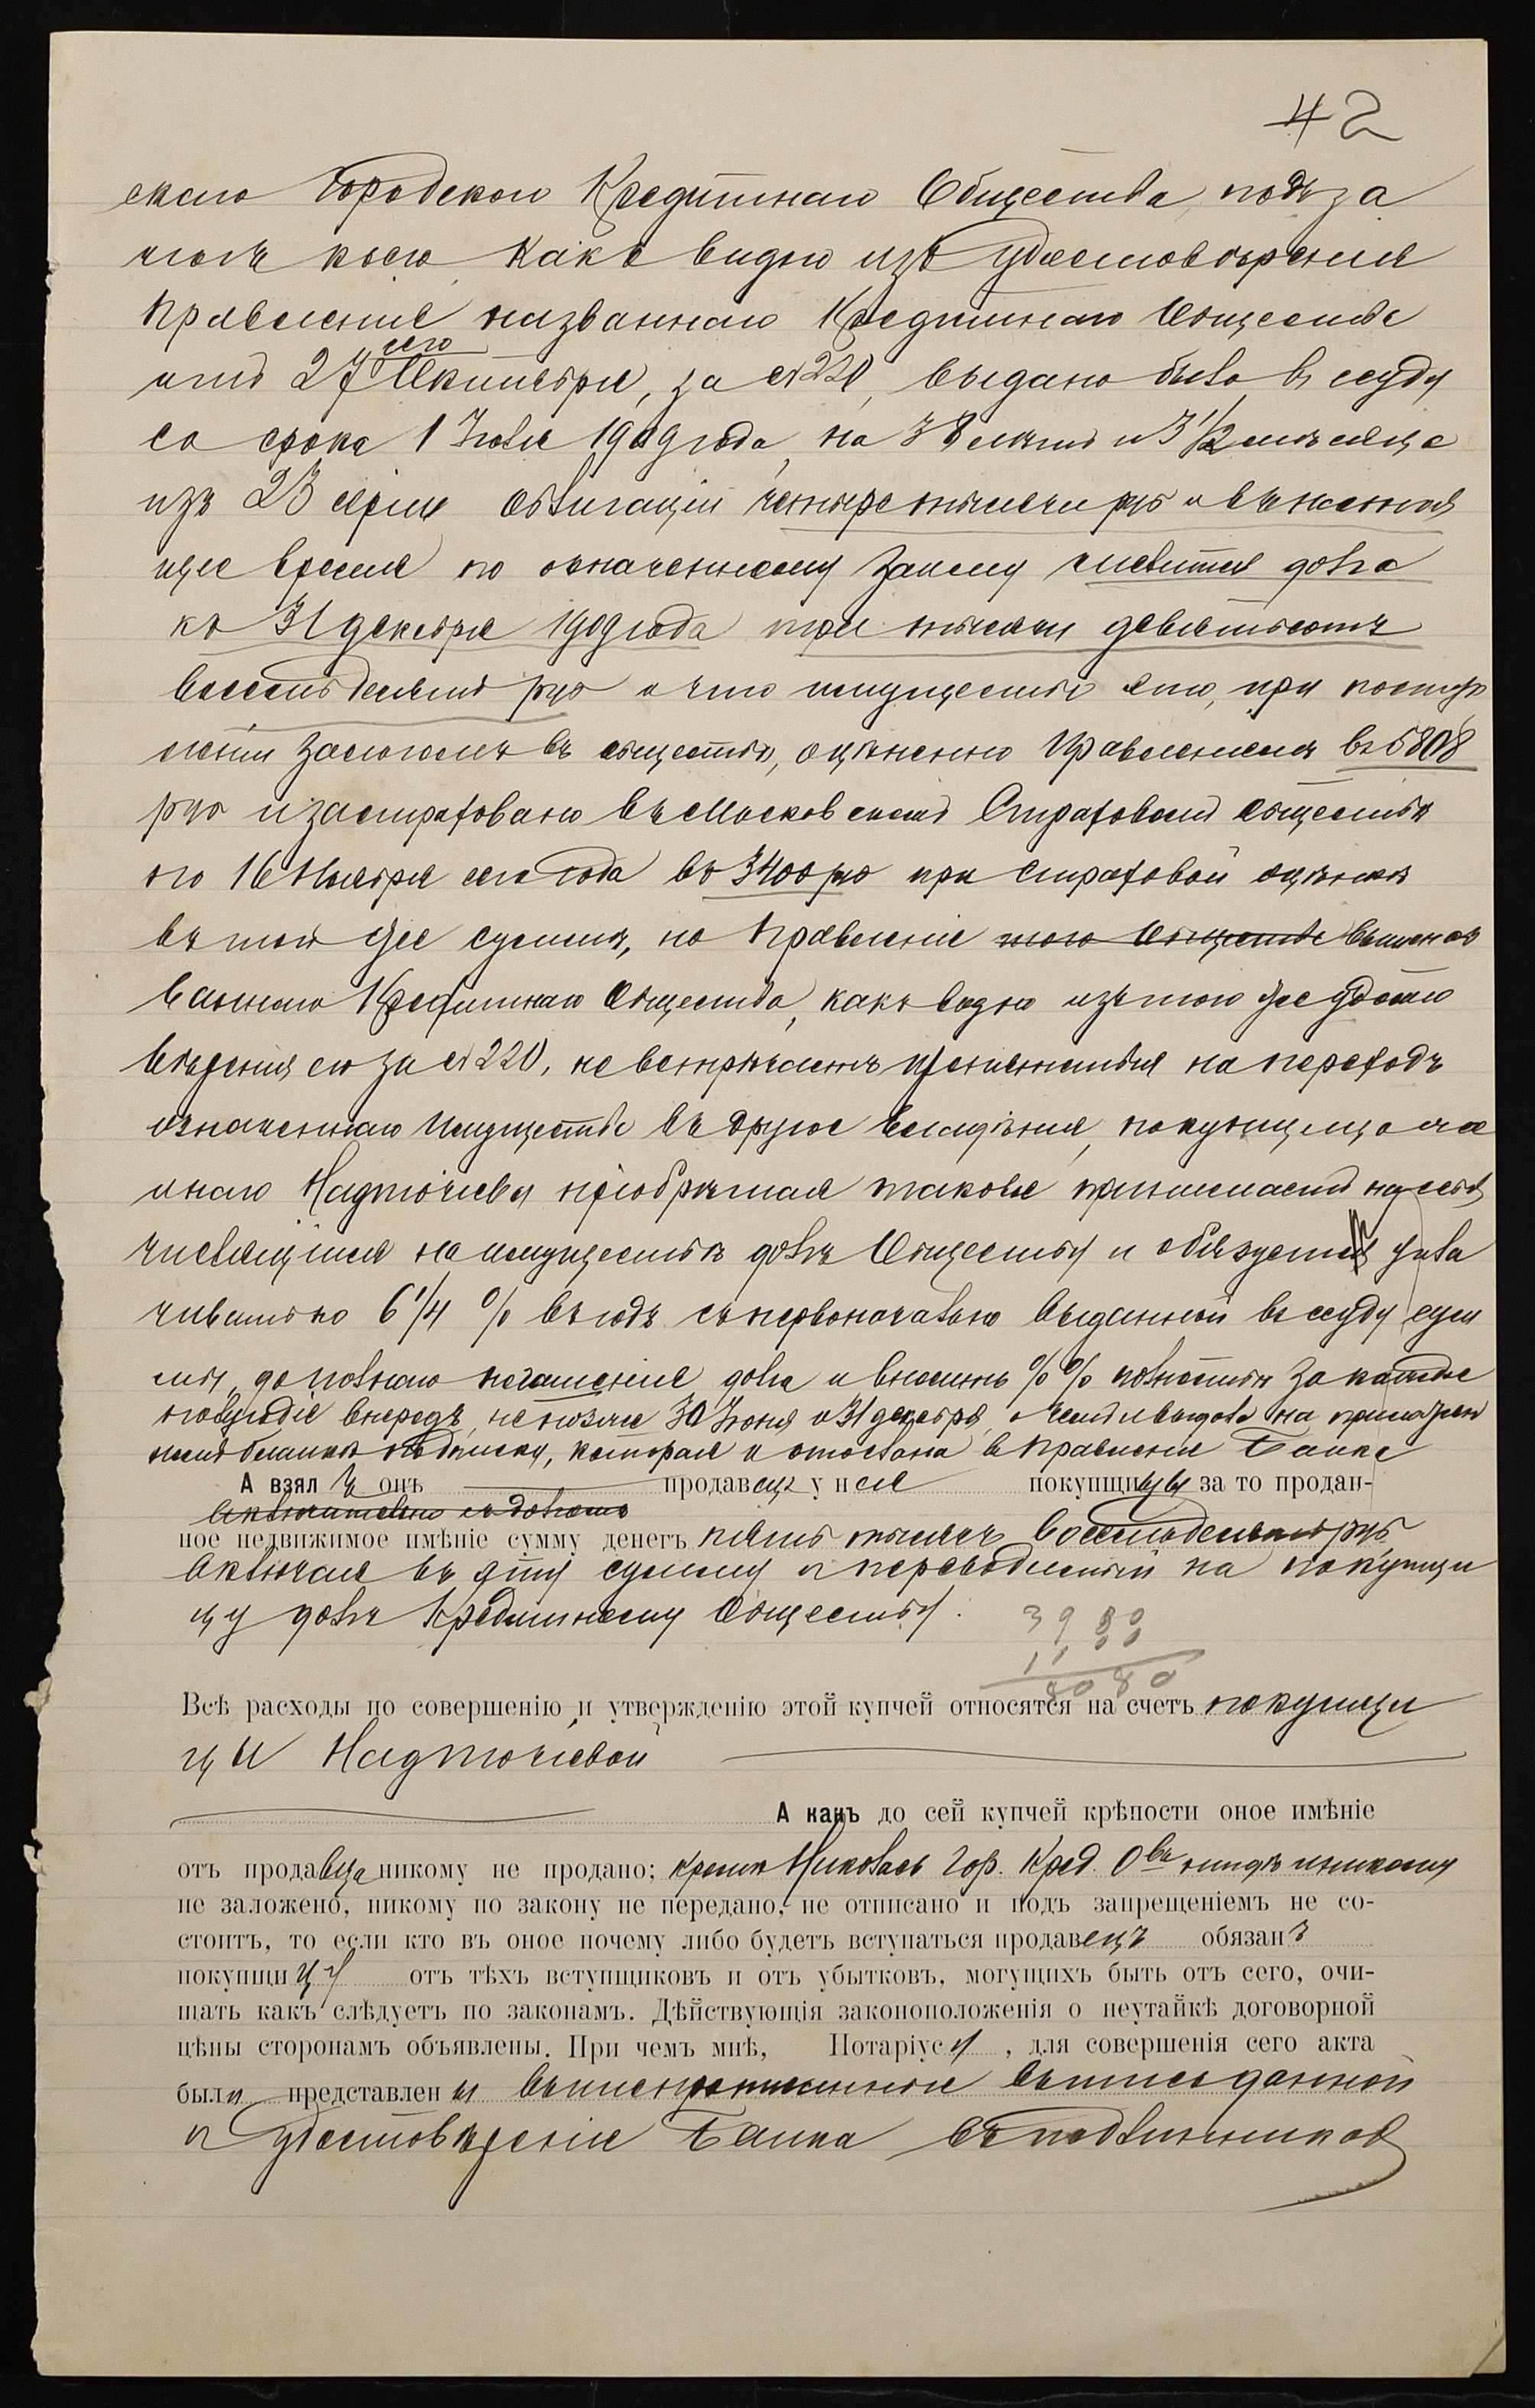 42
скаго Городского Кредитнаго Общества, подъ за
логъ коего, какъ видно изъ удостовѣренія
Правленія названнаго Кредитнаго Общества
отъ 27 сего Октября, за № 220, выдано было въ ссуду
со срока 1 Іюля 1909 года, на 38 лѣтъ и 3 1/2 мѣсяца
изъ 23 серіи облигацій четыре тысячи руб и въ настоя
щее время по означенному займу числится долга
къ 31 декабря 1909 года три тысячи девятьсотъ
восемьдесятъ руб и что имущество это, при поступ
леніи залогомъ въ общество, оцѣнено Правленіемъ въ 5808
руб и застраховано въ Московскомъ Страховомъ обществѣ
по 16 Ноября сего года въ 3400 руб при страховой оцѣнкѣ
въ той же суммѣ, но Правленіе того Общества вышеназ
ваннаго Кредитнаго Общества, какъ видно изъ того же удосто
вѣренія его за № 220, не встрѣчаетъ препятствія на переходъ
означеннаго имущества въ другое владѣніе, покупщица
Надточіева пріобрѣтая таковое принимаетъ на себя
числящійся на имуществѣ долгъ Обществу и обязуется упла
чивать по 6 1/4 % въ годъ съ первоначально выданной въ ссуду сум
мы, до полнаго погашенія долга и вносить %% полностью за каждое
полугодіе впередъ, не позже 30 Іюня и 31 декабря, о чемъ и выдала на
бланкѣ подписку, которая и отослана въ Правленіе Банка
А взялъ онъ продавецъ у нея покупщицы за то продан-
включительно съ долгомъ
ное недвижимое имѣніе сумму денегъ пять тысячъ восемьдесятъ руб
включая въ эту сумму и переводимый на покупщи
цу долгъ Кредитному Обществу.
3980
1100
5080
Всѣ расходы по совершенію и утвержденію этой купчей относятся на счетъ покупщи
цы Надточіевой
А какъ до сей купчей крѣпости оное имѣніе
отъ продавца никому не продано; кромѣ Николаев Гор. Кред. О-ва нигдѣ и никому
не заложено, никому по закону не передано, не отписано и подъ запрещеніемъ не со-
стоитъ, то если кто въ оное почему либо будетъ вступаться продавецъ обязанъ
покупщицу отъ тѣхъ вступщиковъ и отъ убытковъ, могущихъ быть отъ сего, очи-
щать какъ слѣдуетъ по законамъ. Дѣйствующія законоположенія о неутайкѣ договорной
цѣны сторонамъ объявлены. При чемъ мнѣ, Нотаріусу, для совершенія сего акта
были представлены выпись данной
и удостовѣреніе Банка въ подлинникѣ